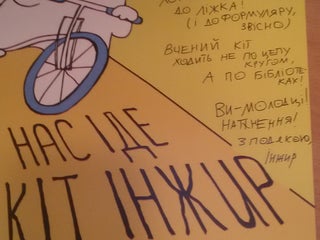 ДО ЛІЖКА!
(І ДО ФОРМУЛЯРУ,
ЗВІСНО)
ВЧЕНИЙ КІТ
ХОДИТЬ НЕ ПО ЦЕПУ
КРУГОМ,
А ПО БІБЛІОТЕ-
КАХ!
ВИ - МОЛОДЦІ!
НАТХНЕННЯ!
З ПОДЯКОЮ,
Інжир
НАС ІДЕ
КІТ ІНЖИР